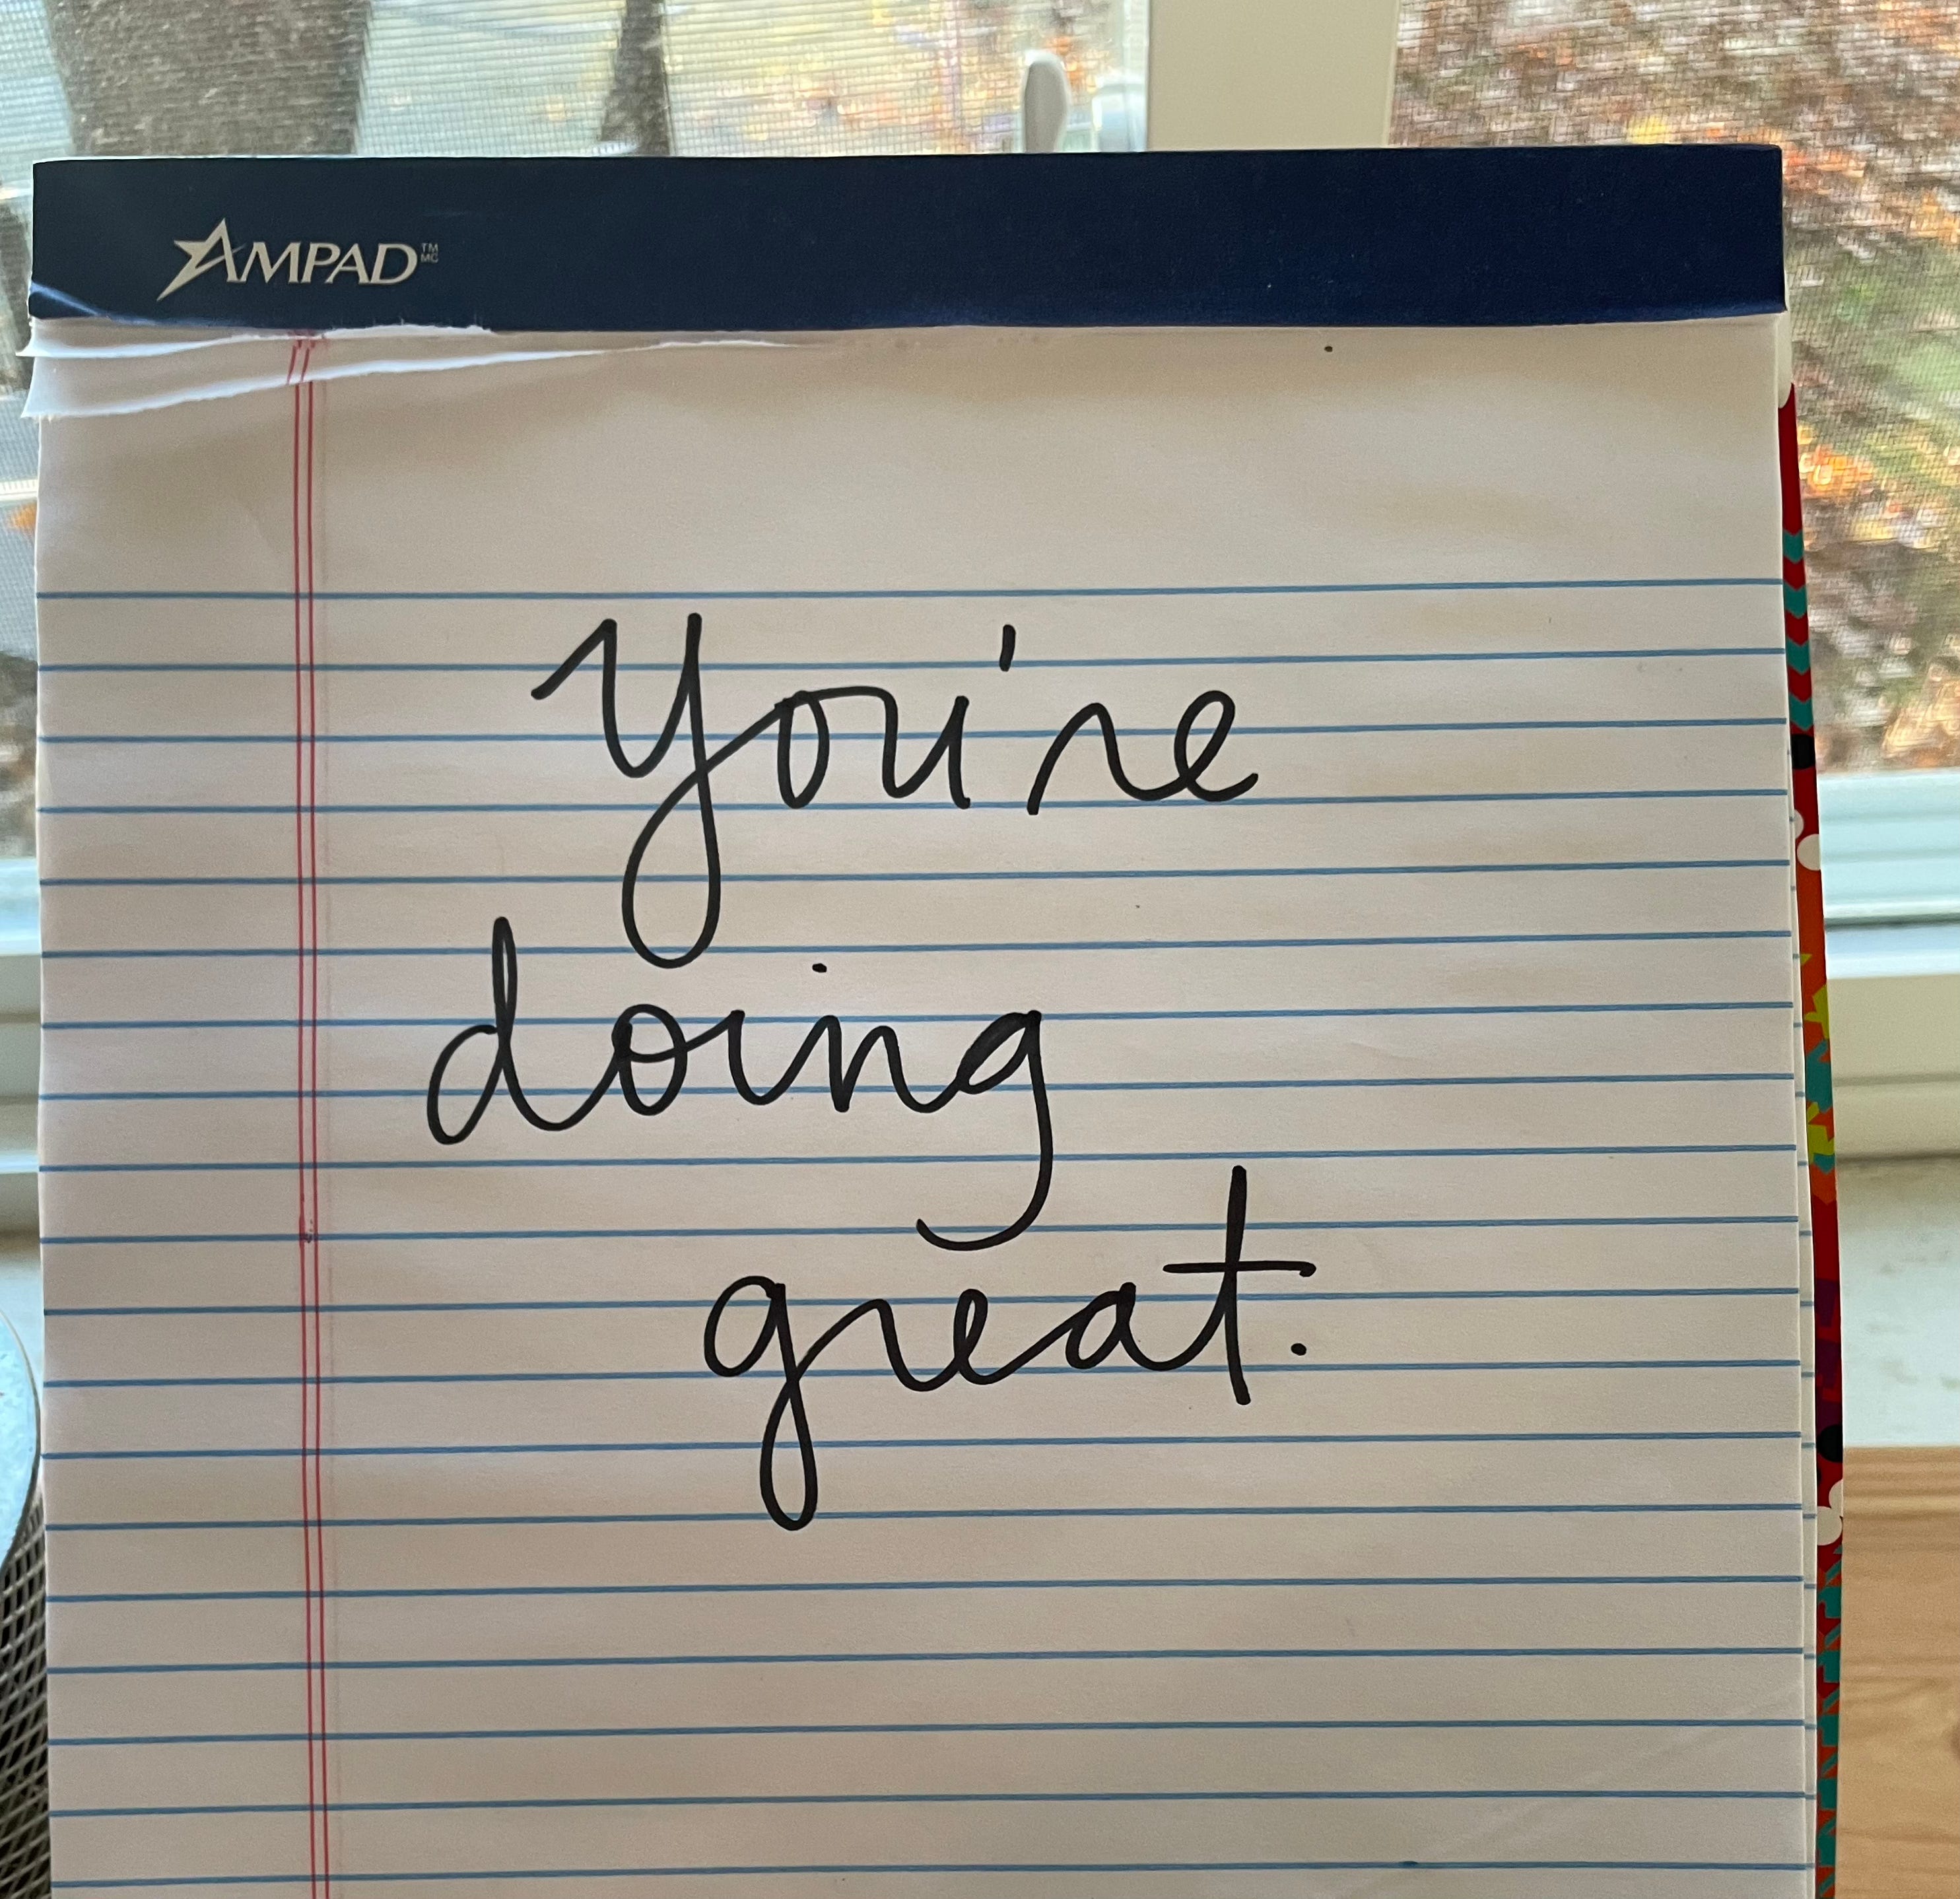 AMPAD™ MC
You're
doing
great.